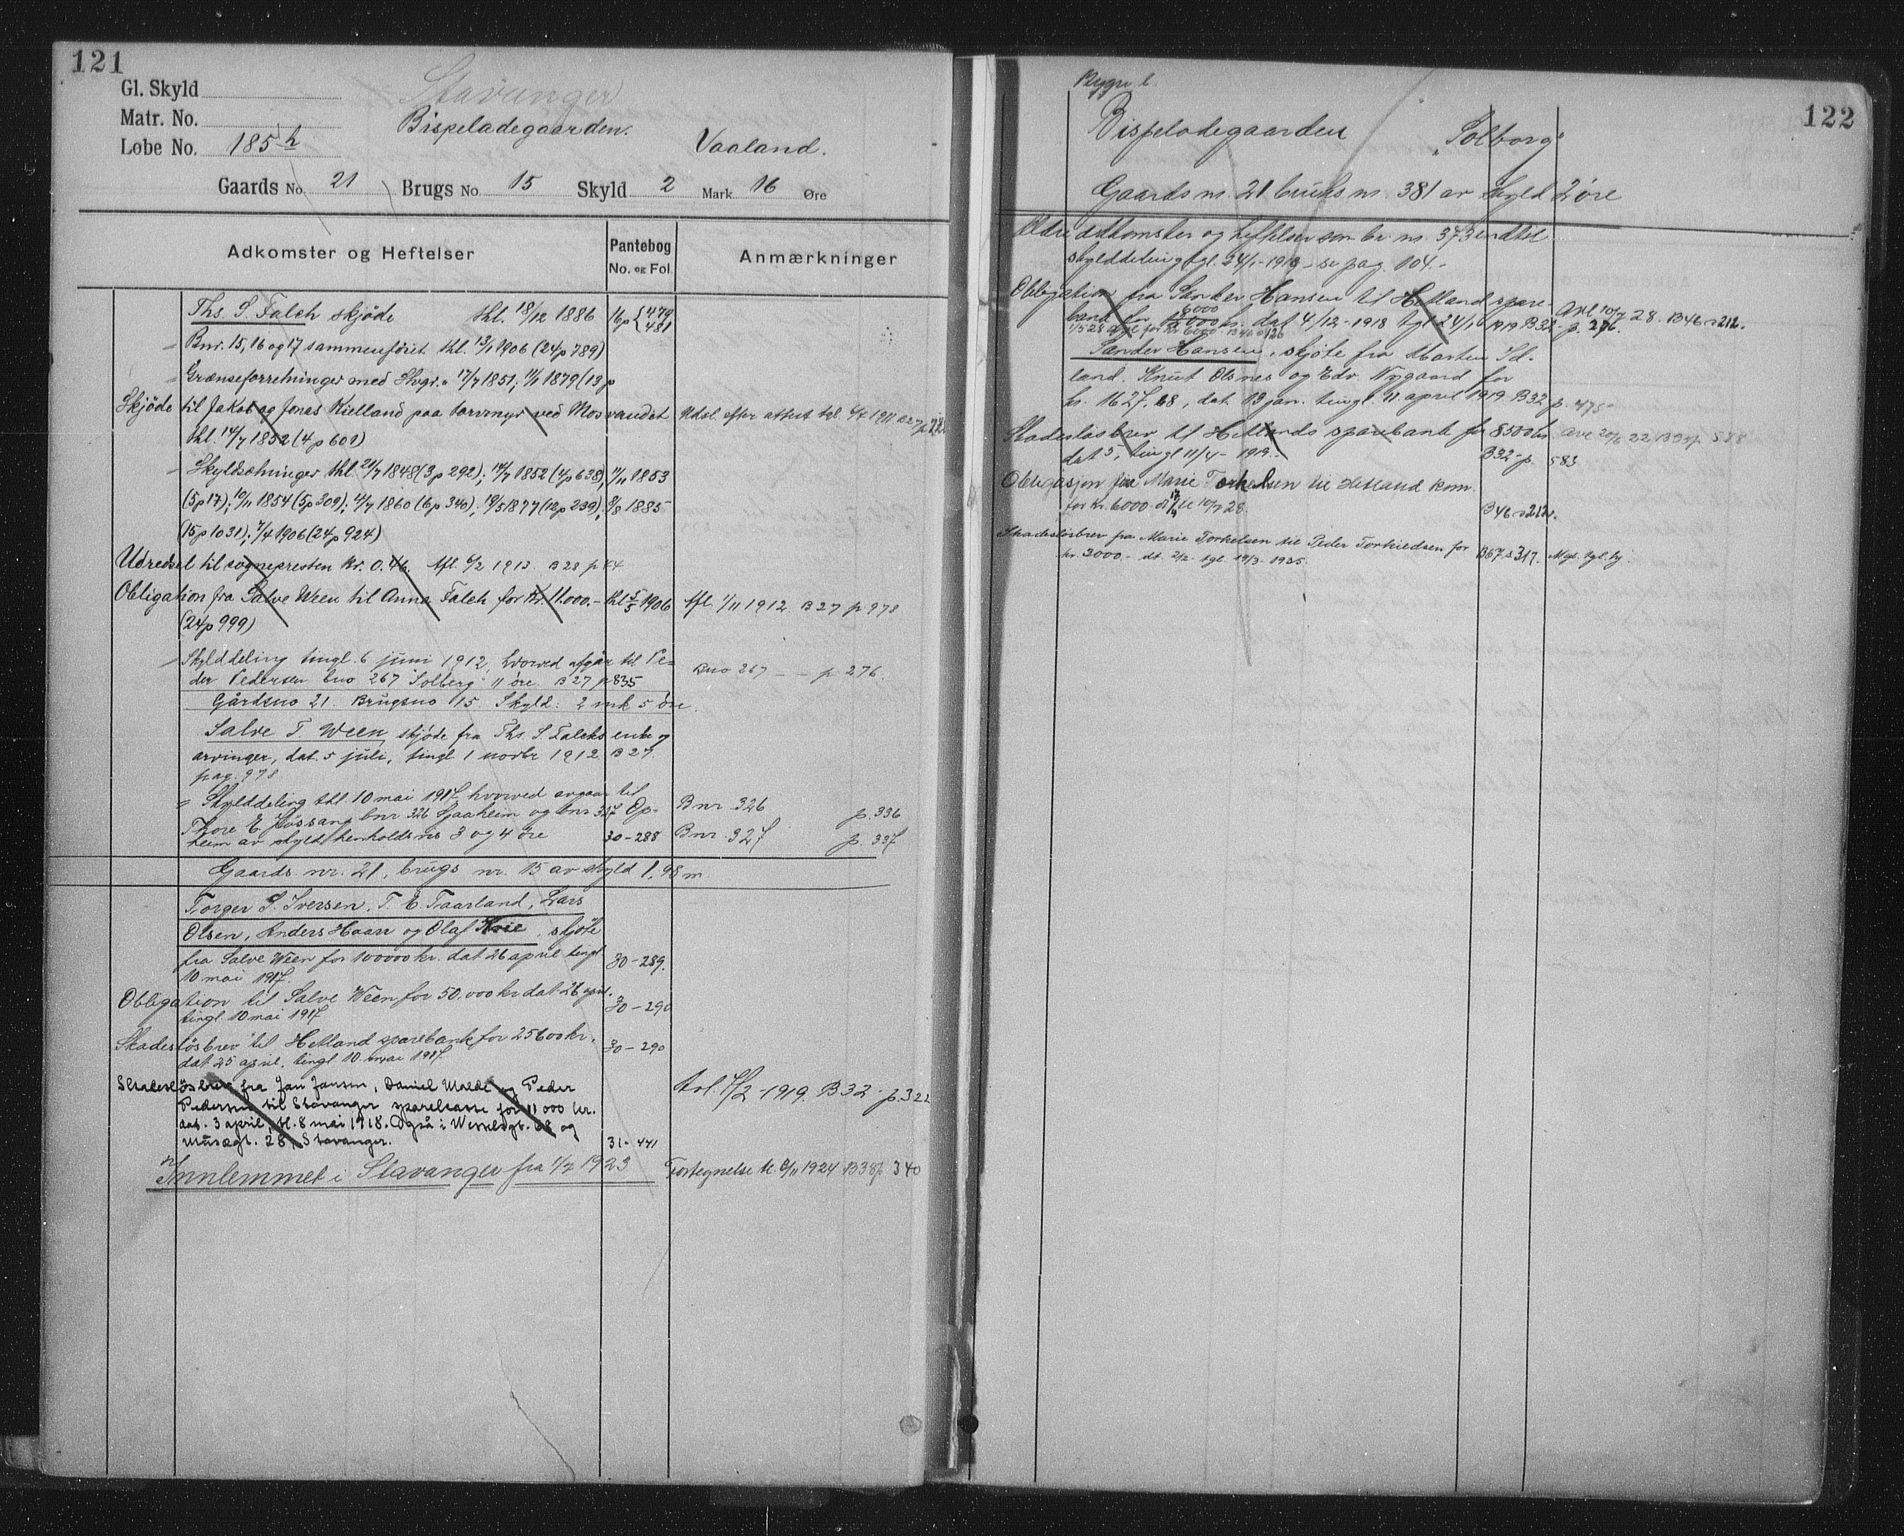 121
Gl. Skyld
Matr. No.
Løbe No. 185 h
Stavanger
Bispeladegaarden.
Vaaland.
Gaards No. 21 Brugs No. 15 Skyld 2 Mark 16 Øre
Adkomster og Heftelser
Pantebog
No. og Fol.
Anmærkninger
Ths. S. Falch skjøde thl. 18/12 1886 16p {479 481
" Bnr. 15, 16 og 17 sammenføiet thl. 13/1 1906 (24p 789)
" Grænseforretninger med Stvgr. " 17/7 1851; 11/1 1879 (13p
Skjøde til Jakob og Jonas Kielland paa torvmyr ved Mosvandet
thl. 14/7 1852 (4p 601)
" Skyldsætninger thl. 21/7 1848 (3p 292); 14/7 1852 (4p 638), 11/11 1853
(5p 17); 10/11 1854 (5p 309); 4/7 1860 (6p 340); 19/5 1877 (12p 239); 8/8 1885
(15p 1031); 7/4 1906 (24p 924)
Udredsel til sognepresten kr. 0.46. Afl. 6/2 1913 B 28 p 44
Obligation fra Salve Ween til Anna Falch for kr. 11.000.- thl 5/5 1906
(24p 999)
Afl. 1/11 1912 B 27 p 978
" Skylddeling tingl. 6 juni 1912, hvorved afgår til Pe-
der Pedersen bno 267 "Solberg" 11 øre. B 27 p 835
Bno 267 — — p 276.
Gårdsno 21. Brugsno 15 Skyld: 2 mk 5 øre.
Salve T. Ween, skjøde fra Ths. S. Falcks enke og
arvinger, dat. 5 juli, tingl 1 novbr 1912 B 27.
pag. 978
" Skylddeling thl. 10 mai 1917, hvorved avgaar til
Thore E. Jøssang bnr 326 Sjaaheim og bnr 327 Op-
heim av skyld henholdsvis 3 og 4 øre 30-288
Bnr 326 p. 336
Bnr. 327 p. 337
Gaards. nr. 21, brugs nr. 15 av skyld 1,98 m
Torger S. Iversen, T. E. Taarland, Lars
Olsen, Anders Haan og Olaf Kvie, skjøte
fra Salve Ween for 100000 kr. dat 26 april tingl 30-289.
10 mai 1917.
Obligation til Salve Ween for 50.000 kr dat 26 april.
tingl 10 mai 1917 30-290
Skadesløsbrev til Hetland sparebank for 25600 kr.
dat 25 april. tingl 10 mai 1917. 30-290
Skadesløsbrev fra Jan Jansen, Daniel Malde og Peder
Pedersen til Stavanger sparekasse for 11000 kr.
dat. 3 april, tl. 8 mai 1918. Også i Wesselsgt. 68 og
Musægt. 28, Stavanger. 31-441
Avl. 5/2 - 1919. B 32 - p. 322
Innlemmet i Stavanger fra 1/7 1923
Fortegnelse tl. 6/11 1924 B 38 p. 340
122
Byggn. l.
Bispeladegaarden "Solborg"
Gaards nr. 21 bruks nr. 381 av skyld 2 øre
Ældre adkomster og heftelser som br. nr. 373 indtil
skylddeling tgl. 24/1-1919 - se pag. 104.-
Obligation fra Sander Hansen til Hetland spare-
bank for 6000 kr. dat 4/12-1918 tgl. 24/1 1919 B 32 - p. 276.
Avl 10/7 28. B 46 s 212.
Sander Hansen, skjøte fra Morten Id-
land, Knut Olsnes og Edv. Nygaard for
kr. 1627,68, dat. 13 jan. tingl 11 april 1919 B 32 p. 475
Skadesløsbrev til Hetlands sparebank for 8500 kr
dat , tingl 11/4 - 1919.- B 32 - p. 583
Obligasjon fra Marie Torkelsen til Hetland kom.
for kr. 6000. tl 10/7 28. B 46 s 212.
Skadesløsbrev fra Marie Torkelsen til Peder Torkildsen for
kr. 3000.- dt. 2/2 - tgl. 19/3 - 1935. B 67 s 317.